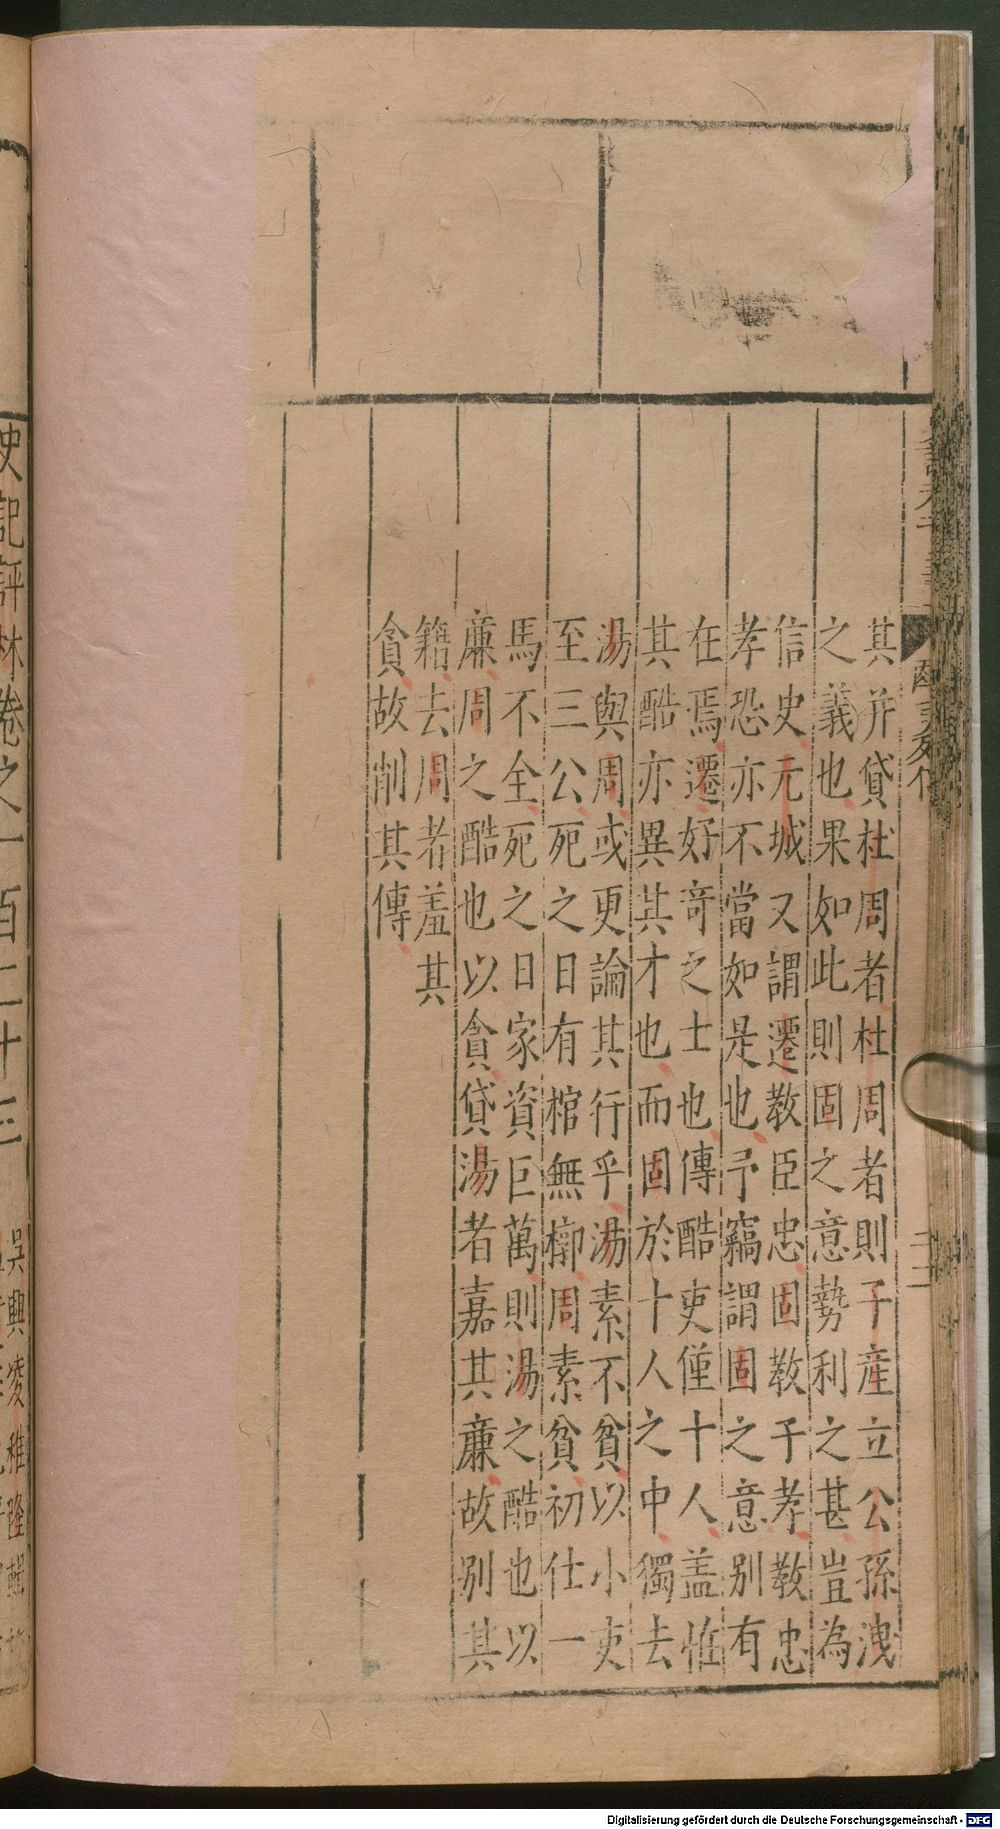 其并貸杜周者杜周者則子産立公孫洩
之義也果如此則固之意勢利之甚豈為
信史元城又謂遷教臣忠固教子孝教忠
孝恐亦不當如是也予竊謂固之意别有
在焉遷好竒之士也傳酷吏僅十人盖怪
其酷亦異其才也而固於十人之中獨去
湯與周或更論其行乎湯素不貧以小吏
至三公死之日有棺無槨周素貧初仕一
馬不全死之日家資巨萬則湯之酷也以
廉周之酷也以貪貸湯者嘉其廉故别其
籍去周者羞其
貪故削其傳
史記評林卷之一百二十三
吳興凌稚隆輯校
Digitalisierung gefördert durch die Deutsche Forschungsgemeinschaft - DFG